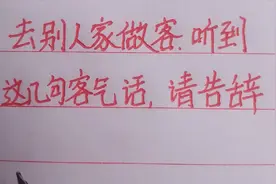 去别人家做客.听到
这几句客气话,请告辞